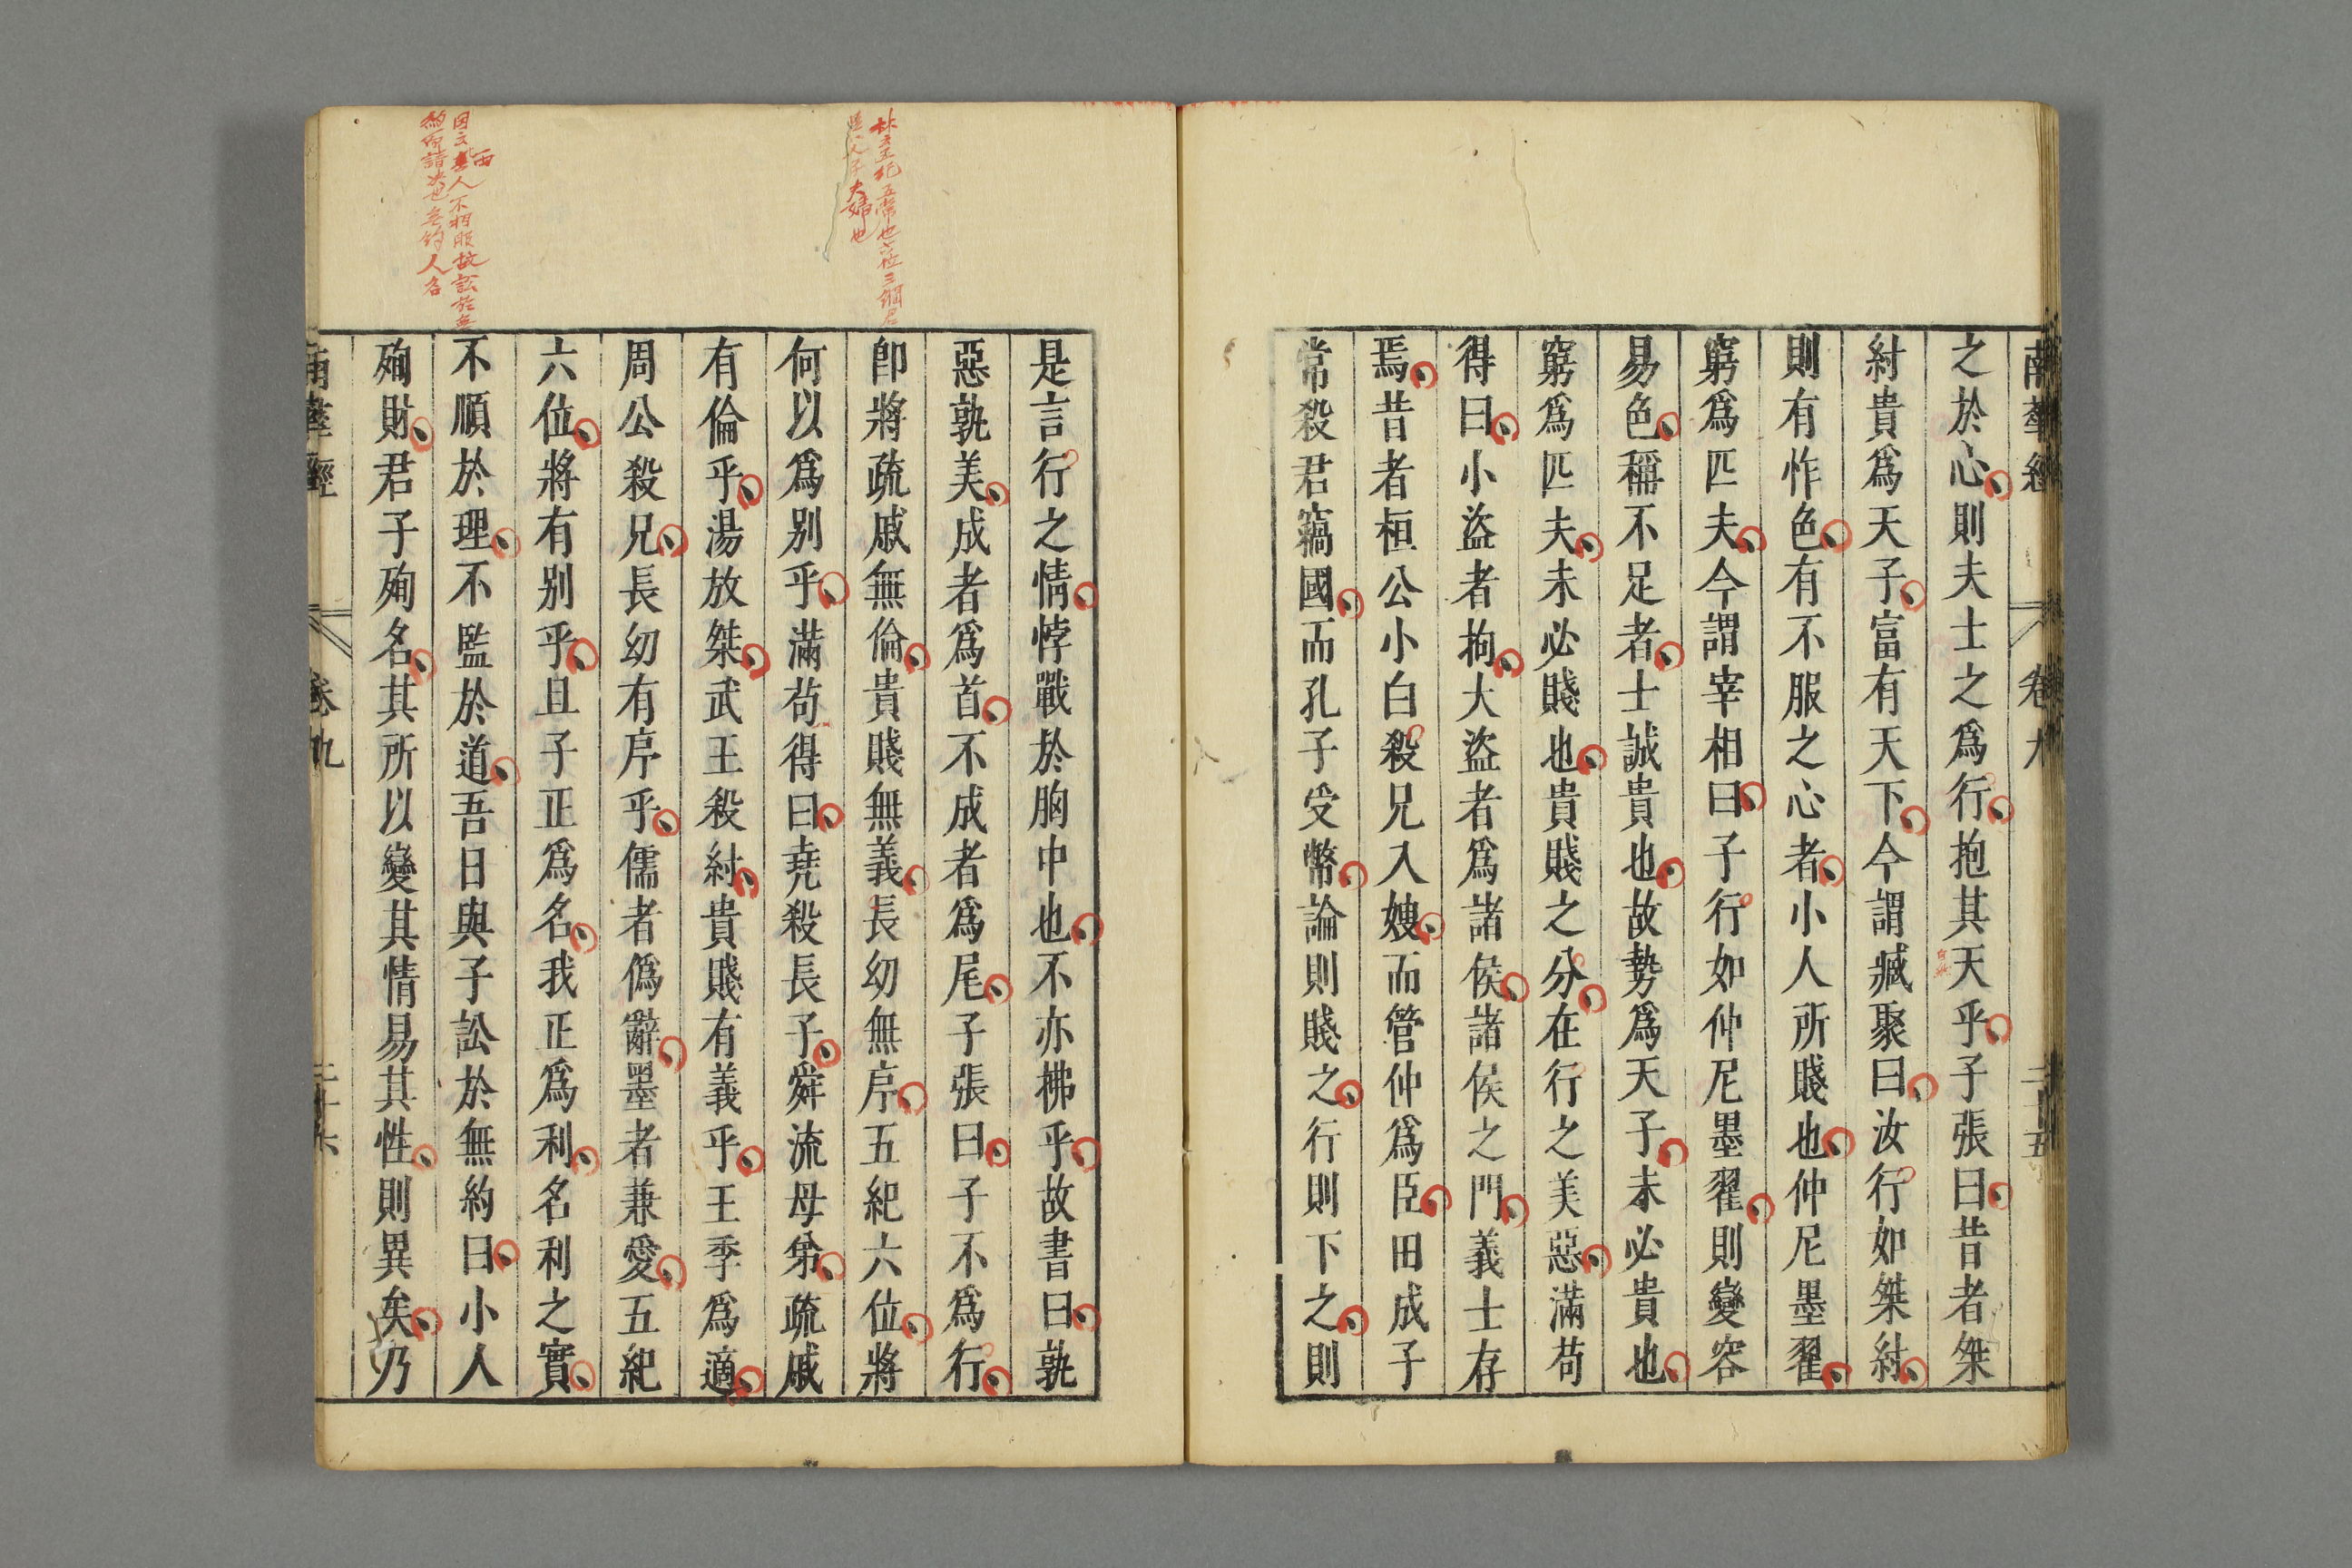 之於心則夫士之爲行抱其天乎子張曰昔者桀
紂貴爲天子富有天下今謂臧聚曰汝行如桀紂
則有怍色有不服之心者小人所賤也仲尼墨翟
窮爲匹夫今謂宰相曰子行如仲尼墨翟則變容
易色稱不足者士誠貴也故勢爲天子未必貴也
窮爲匹夫未必賤也貴賤之分在行之美惡滿苟
得曰小盜者拘大盜者爲諸侯諸侯之門義士存
焉昔者桓公小白殺兄入嫂而管仲爲臣田成子
常殺君竊國而孔子受幣論則賤之行則下之則
是言行之情悖戰於胸中也不亦拂乎故書曰孰
惡孰美成者爲首不成者爲尾子張曰子不爲行
卽將疏戚無倫貴賤無義長幼無序五紀六位將
何以爲別乎滿苟得曰堯殺長子舜流母弟疏戚
有倫乎湯放桀武王殺紂貴賤有義乎王季爲適
周公殺兄長幼有序乎儒者僞辭墨者兼愛五紀
六位將有別乎且子正爲名我正爲利名利之實
不順於理不監於道吾日與子訟於無約曰小人
殉財君子殉名其所以變其情易其性則異矣乃
南華經 卷九